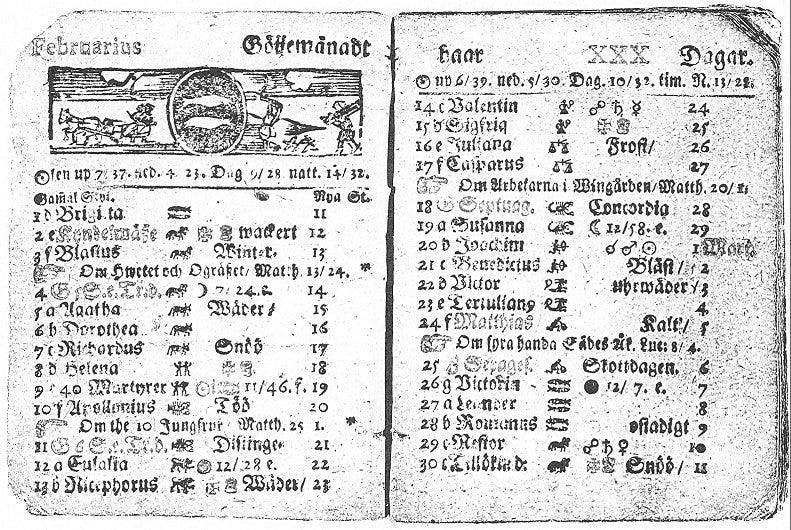 Februarius Götjemånadt
☉len up 7/37. ned. 4 23. Dag 9/28 natt. 14/32.
Gamal Styl. Nya St.
1 d Brigitta 11
2 e Kyndelmässe wackert 12
3 f Blasius Winter. 13
Om Hwetet och Ogräset/ Matth. 13/24.
4 G 5 S. e. Tr. d. ☽ 7/24. e. 14
5 a Agatha Wäder/ 15
6 b Dorothea 16
7 c Richardus Snöö 17
8 d Helena 18
9 e 40 Martyrer 11/46. f. 19
10 f Apollonius Töö 20
Om the 10 Jungfrur/ Matth. 25 1.
11 G 6 S. e. Tr. d. Distinge 21
12 a Eulalia 12/28 e. 22
13 b Nicephorus Wäder/ 23
haar XXX Dagar.
☉ up 6/39. ned. 5/30. Dag. 10/32. tim. N. 13/28.
14 c Valentin ☍ ♄ ☿ 24
15 d Sigfrid 25
16 e Juliana Frost/ 26
17 f Casparus 27
Om Arbetarna i Wingården/ Matth. 20/1.
18 G Septuag. Concordia 28
19 a Susanna ☾ 12/58. e. 29
20 b Joachim ☌ ♂ ☉ 1 Mart.
21 c Benedictus Bläst/ 2
22 d Victor uhrwäder/ 3
23 e Tertulian9 4
24 f Matthias Kalt/ 5
Om fyra handa Sädes Åk. Luc: 8/4.
25 G Sexages. Skottdagen. 6
26 g Victorin ● 12/7. e. 7
27 a Leander 8
28 b Romanus ostadigt 9
29 c Nestor ☍ ♄ ♀ 10
30 c Tillökn d: Snöö/ 11